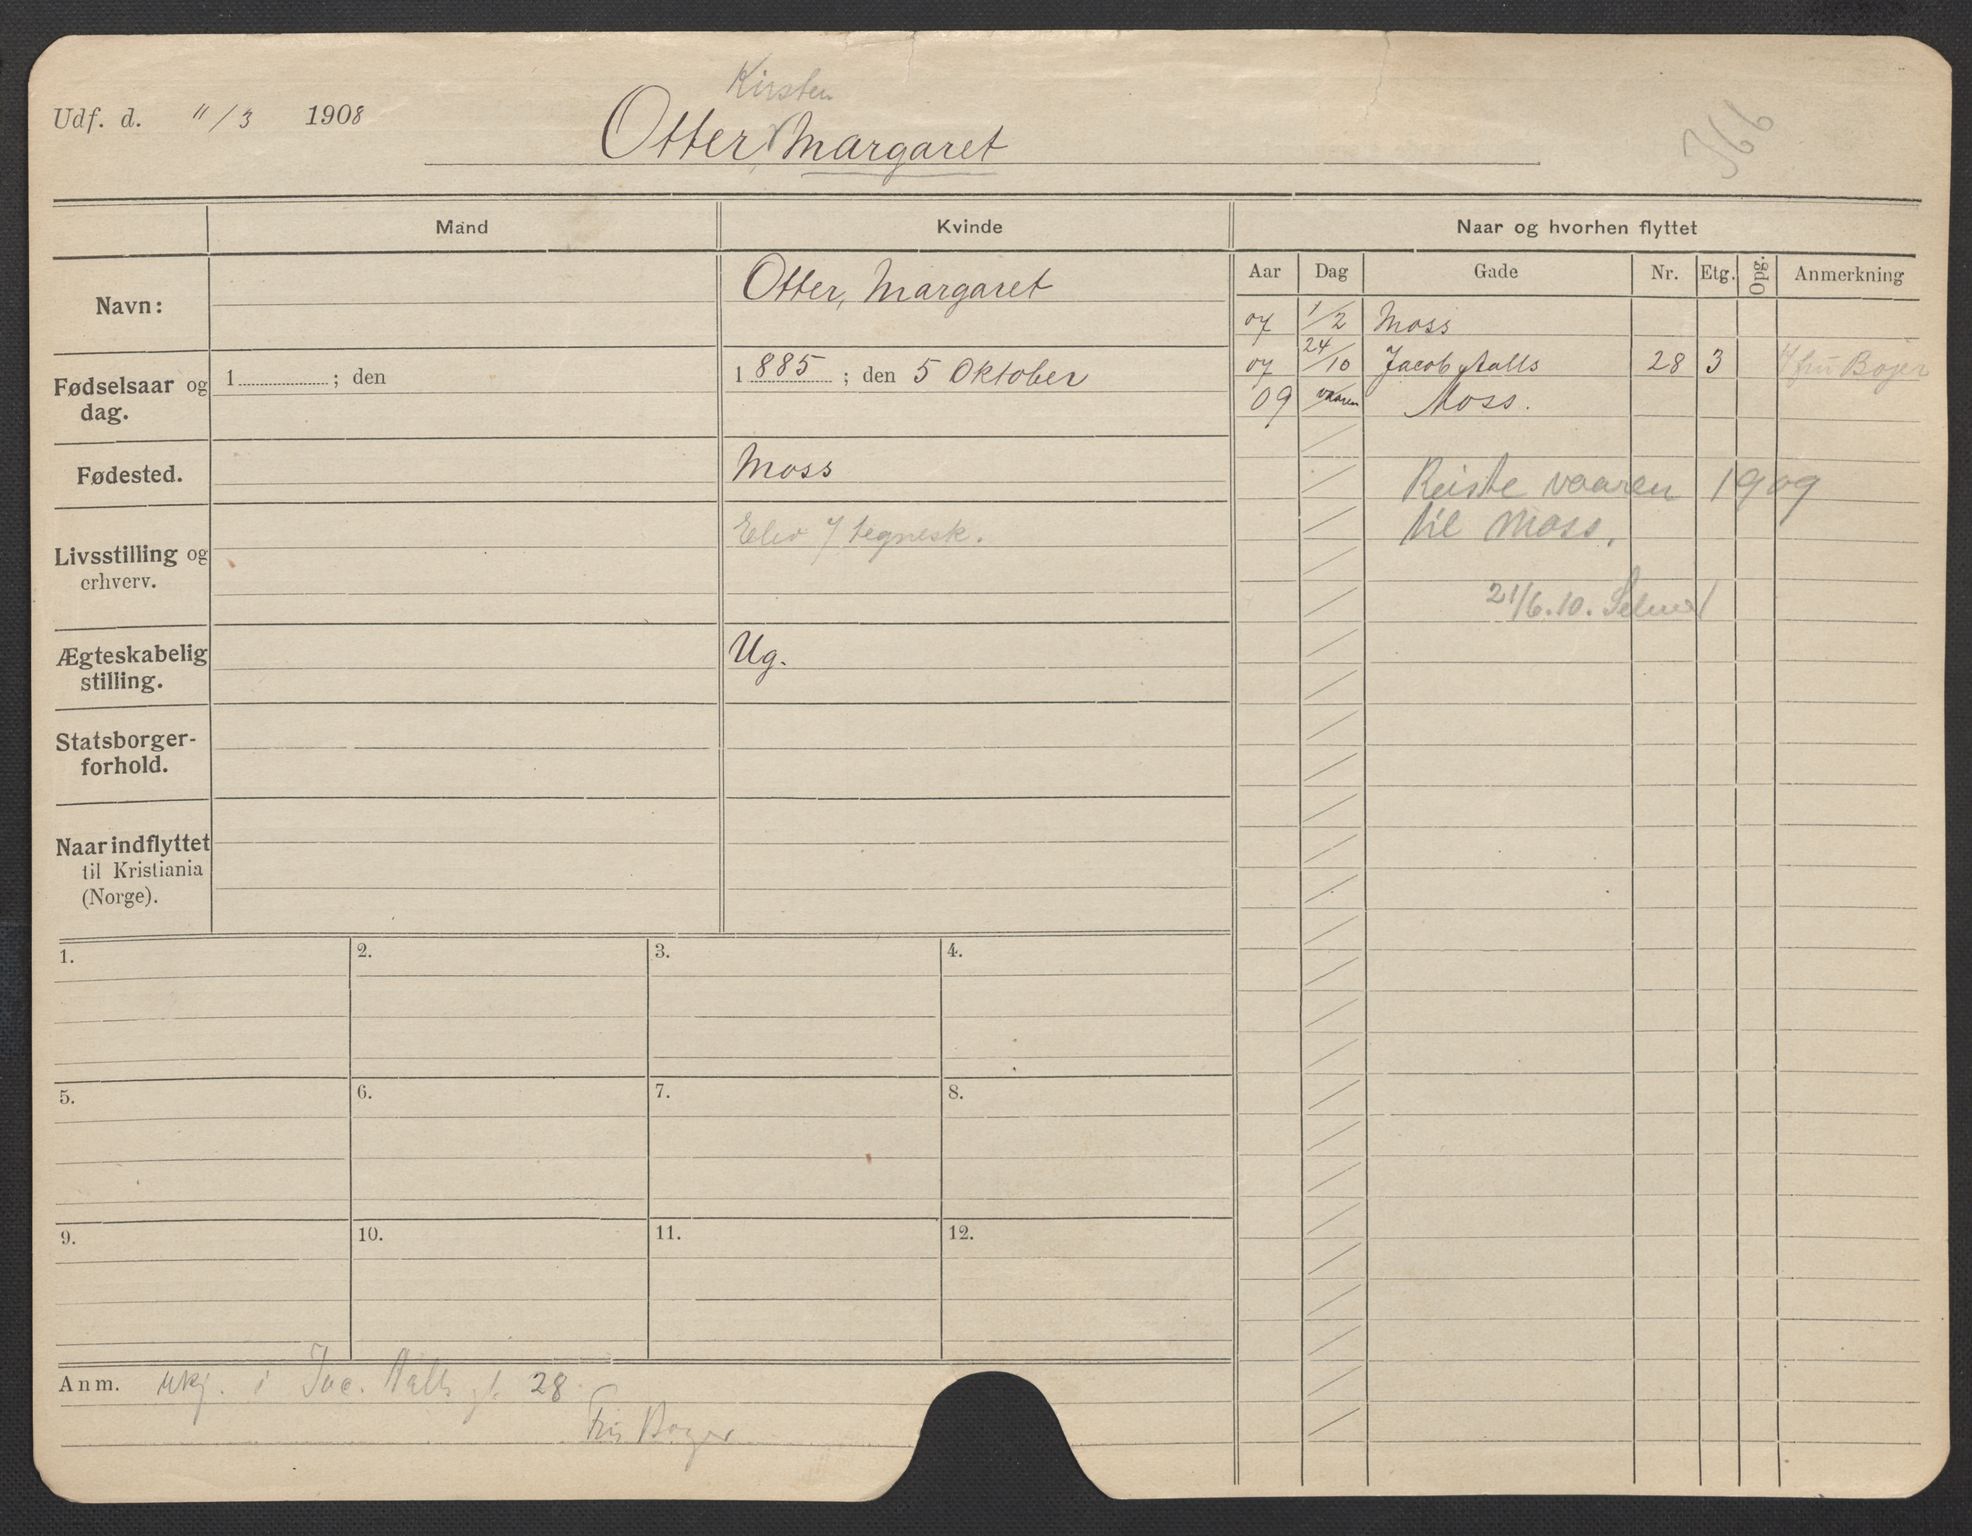 Kirsten
Udf. d. 11/3 1908
Otter, Margaret
Mand Kvinde Naar og hvorhen flyttet
Aar Dag Gade Nr. Etg. Opg. Anmerkning
Navn: Otter, Margaret
07 1/2 Moss
Fødselsaar og dag. 1 ; den 1885 ; den 5 Oktober
07 24/10 Jacob Aalls 28 3 fru Bojer
09 vaaren Moss.
Fødested. Moss
Reiste vaaren 1909
til Moss.
Livsstilling og erhverv. Elev / tegnesk.
21/6.10.
Ægteskabelig stilling. Ug.
Statsborger-
forhold.
Naar indflyttet
til Kristiania
(Norge).
1. 2. 3. 4.
5. 6. 7. 8.
9. 10. 11. 12.
Anm. ukj. i Jac. Aalls gt. 28
Boyer